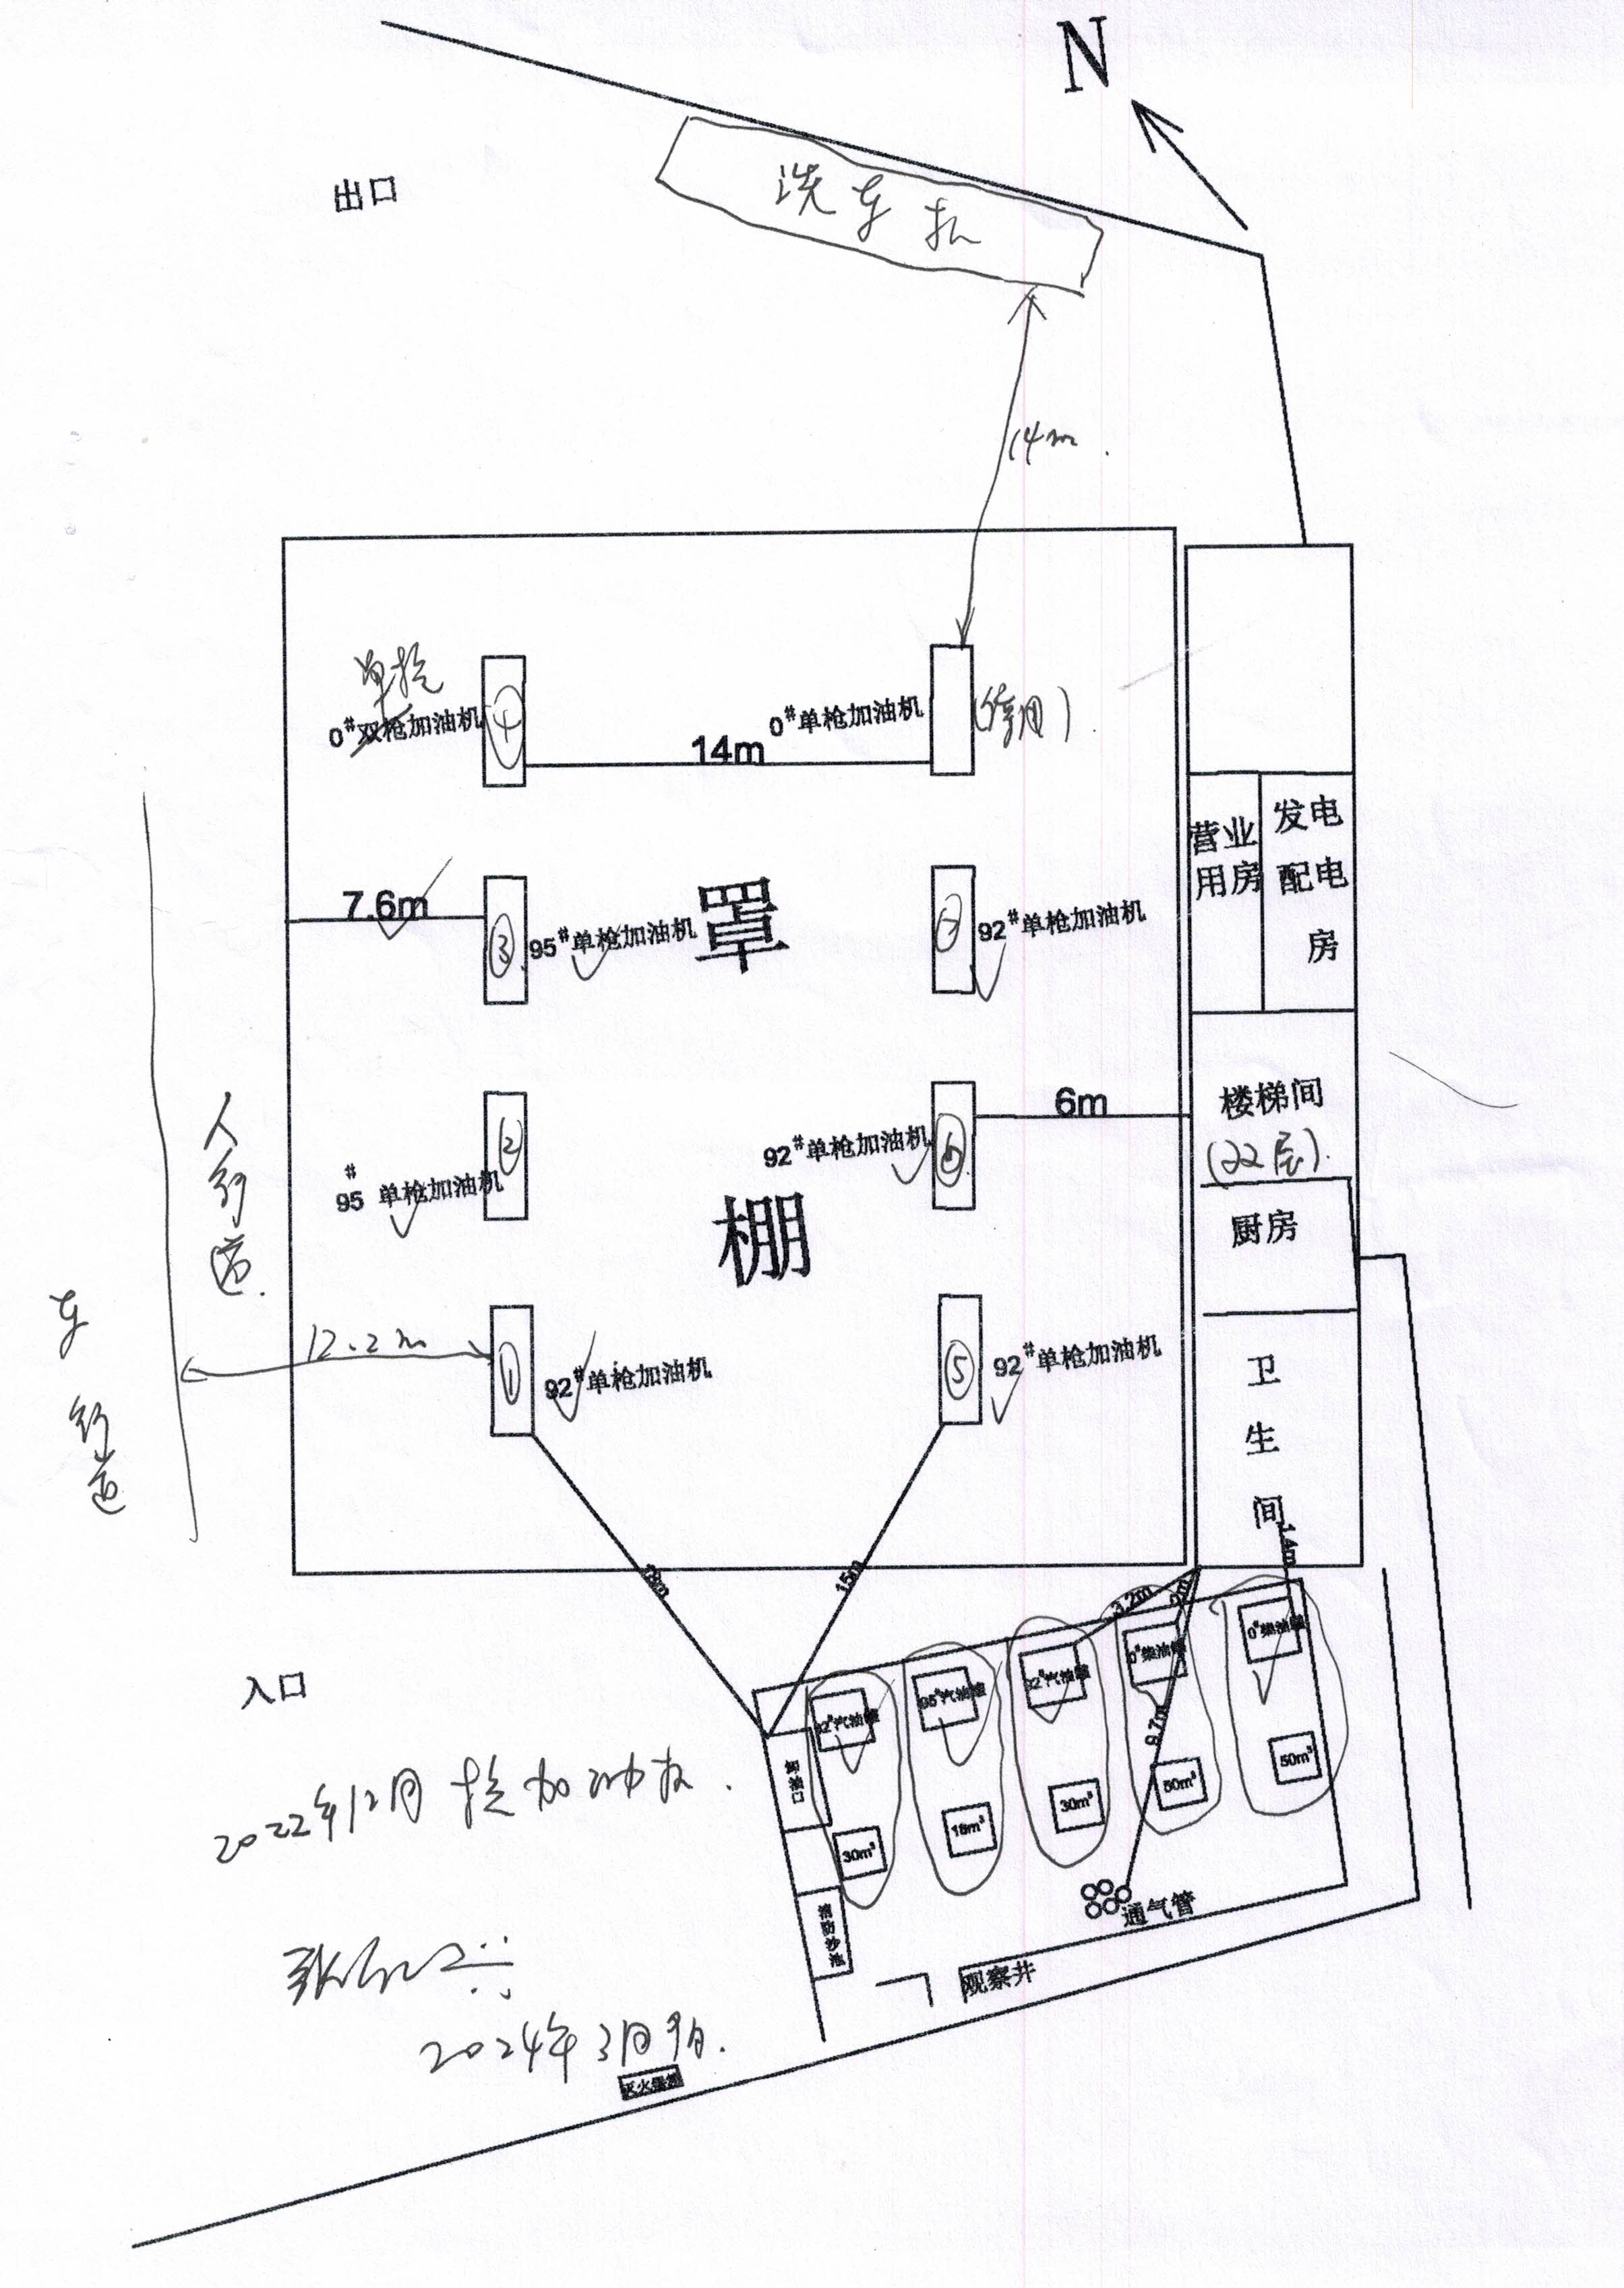 N
出口
洗车机
14m
单枪
0#双枪加油机
④
14m
0#单枪加油机
(停用)
7.6m
③
95#单枪加油机
罩
⑦
92#单枪加油机
营业
用房
发电
配电
房
人行道
②
95#单枪加油机
92#单枪加油机
⑥
6m
楼梯间
(22层)
厨房
棚
车行道
12.2m
①
92#单枪加油机
⑤
92#单枪加油机
卫
生
间
1.4m
15m
3.2m
入口
92#汽油罐
95#汽油罐
92#汽油罐
0#柴油罐
0#柴油罐
卸油口
9.7m
30m³
30m³
50m³
50m³
通气管
消防沙池
观察井
2022年12月
2024年3月
灭火器箱